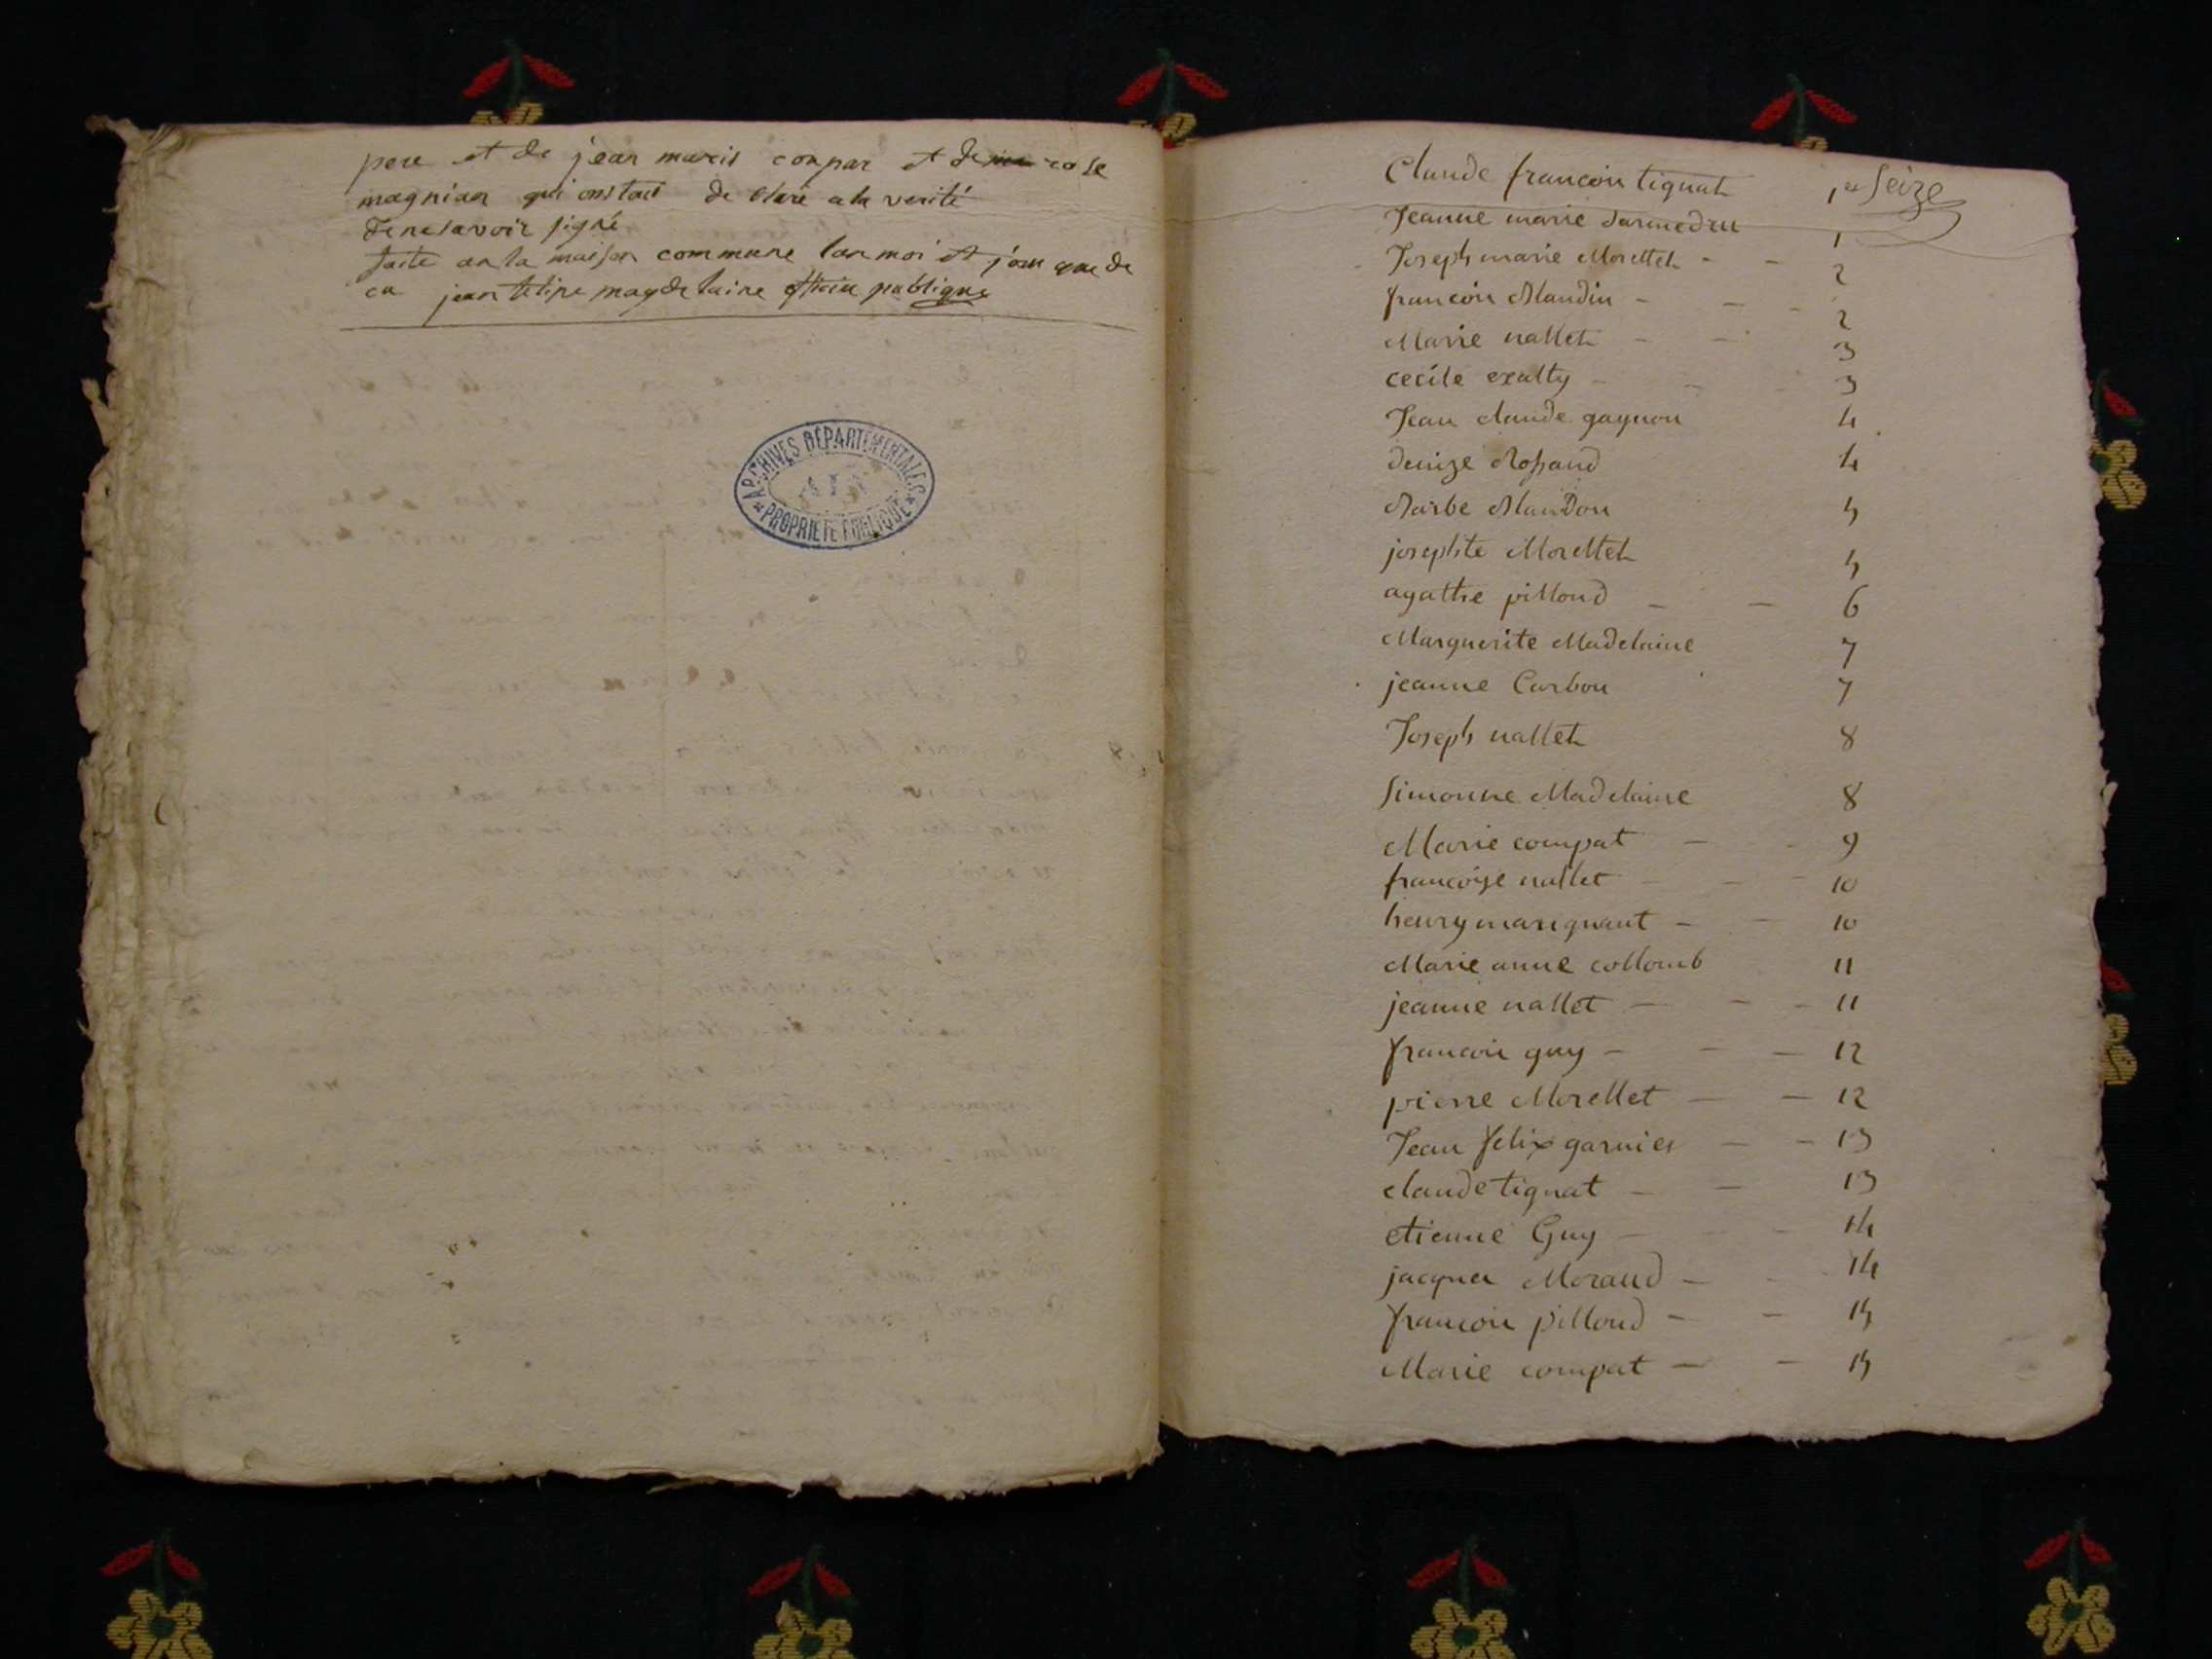 pere et de jean marit conpar et de rose
magnian qui ons tous de clare a la verité
de ne savoir signé
faite an la maison commune lan moi et jour que de
cu jean felipe magdelaine officie publique
ARCHIVES DÉPARTEMENTALES
AIN
PROPRIÉTÉ PUBLIQUE
Seize
Claude francois tignat 1er
Jeanne marie 1
Joseph marie Morellet - - 2
francois Blandin - - - 2
Marie nallet - - 3
cecile exalty - - - 3
Jean claude gaynon 4
denize Rossand 4
Barbe Blandon 5
josephte Morellet 5
agathe pilloud - - 6
Marguerite Madelaine 7
jeanne Carbon 7
Joseph nallet 8
Simonne Madelaine 8
Marie compat - - 9
francoise nallet - - - 10
henry marignant - - 10
Marie anne collomb 11
jeanne nallet - - - 11
francois guy - - - 12
pierre Morellet - - 12
Jean felix garnier - - 13
claude tignat - - 13
etienne Guy - - 14
jacques Moraud - - 14
francois pilloud - - 15
Marie compat - - 15